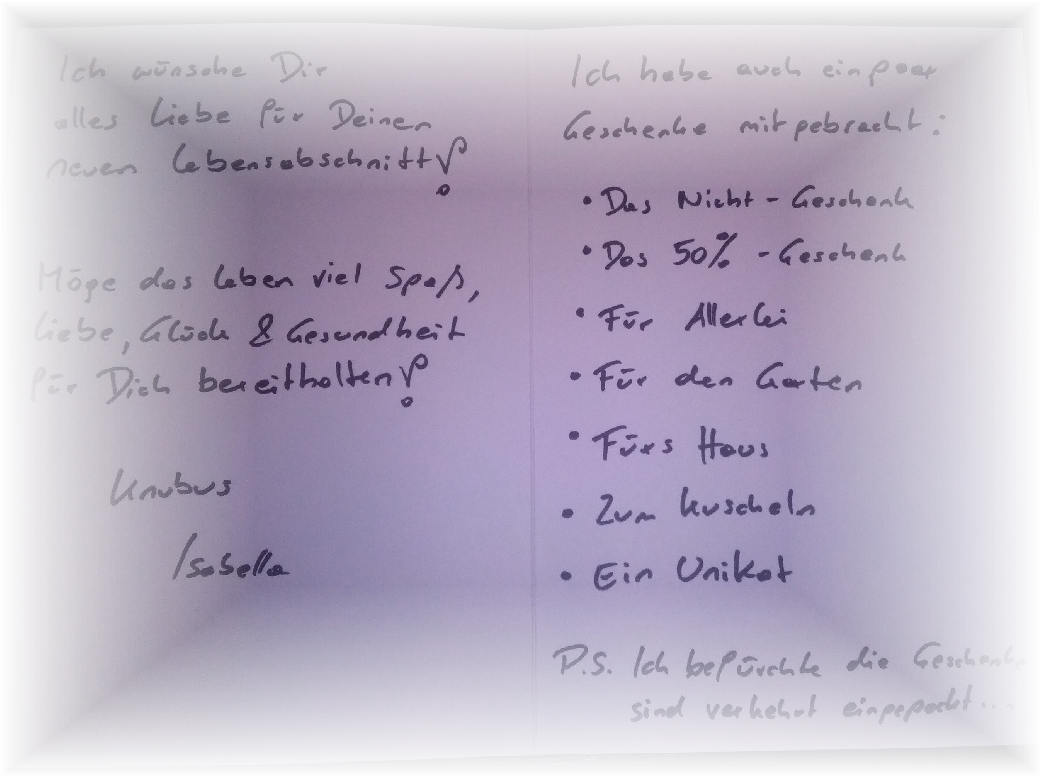 Ich wünsche Dir
alles Liebe für Deinen
neuen Lebensabschnitt!
Möge das Leben viel Spaß,
Liebe, Glück & Gesundheit
für Dich bereithalten!
Knubus
Isabella
Ich habe auch ein paar
Geschenke mitgebracht:
• Das Nicht-Geschenk
• Das 50%-Geschenk
• Für Allerlei
• Für den Garten
• Fürs Haus
• Zum Kuscheln
• Ein Unikat
P.S. Ich befürchte die Geschenke
sind verkehrt eingepackt...